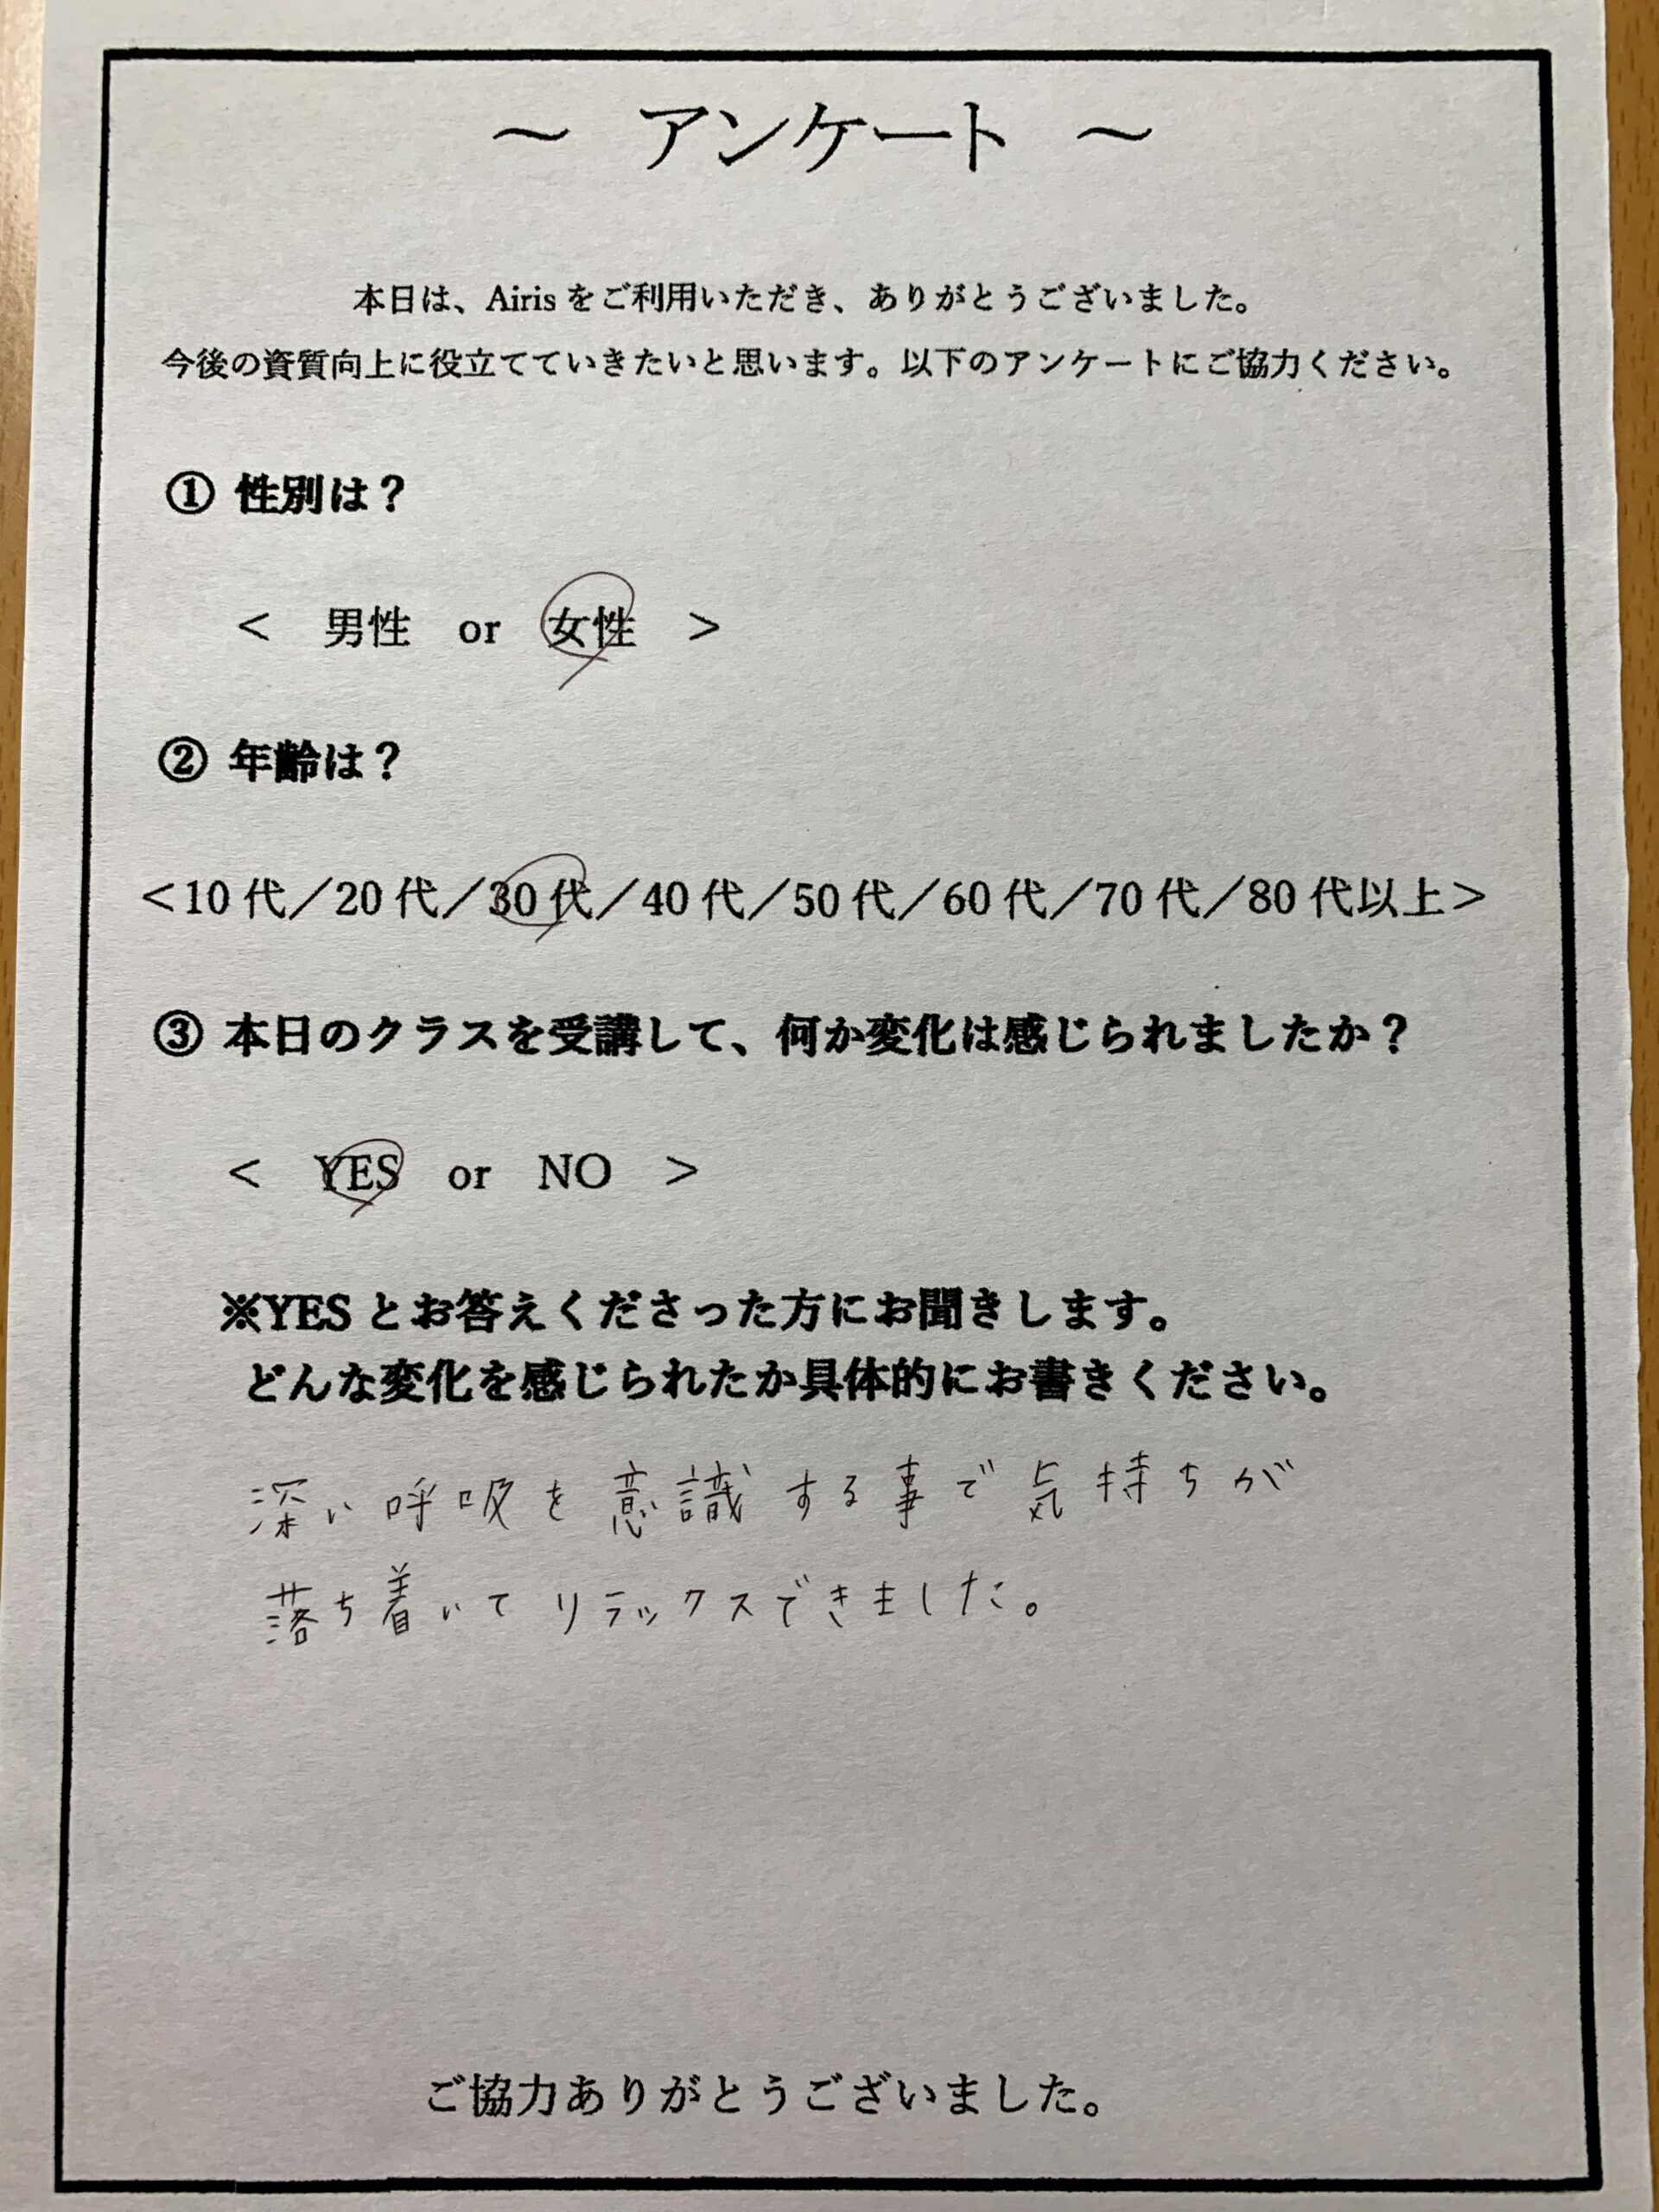 ～ アンケート ～
本日は、Airis をご利用いただき、ありがとうございました。
今後の資質向上に役立てていきたいと思います。以下のアンケートにご協力ください。
① 性別は？
＜ 男性 or 女性 ＞
② 年齢は？
＜10 代／20 代／30 代／40 代／50 代／60 代／70 代／80 代以上＞
③ 本日のクラスを受講して、何か変化は感じられましたか？
＜ YES or NO ＞
※YES とお答えくださった方にお聞きします。
どんな変化を感じられたか具体的にお書きください。
深い呼吸を意識する事で気持ちが
落ち着いてリラックスできました。
ご協力ありがとうございました。